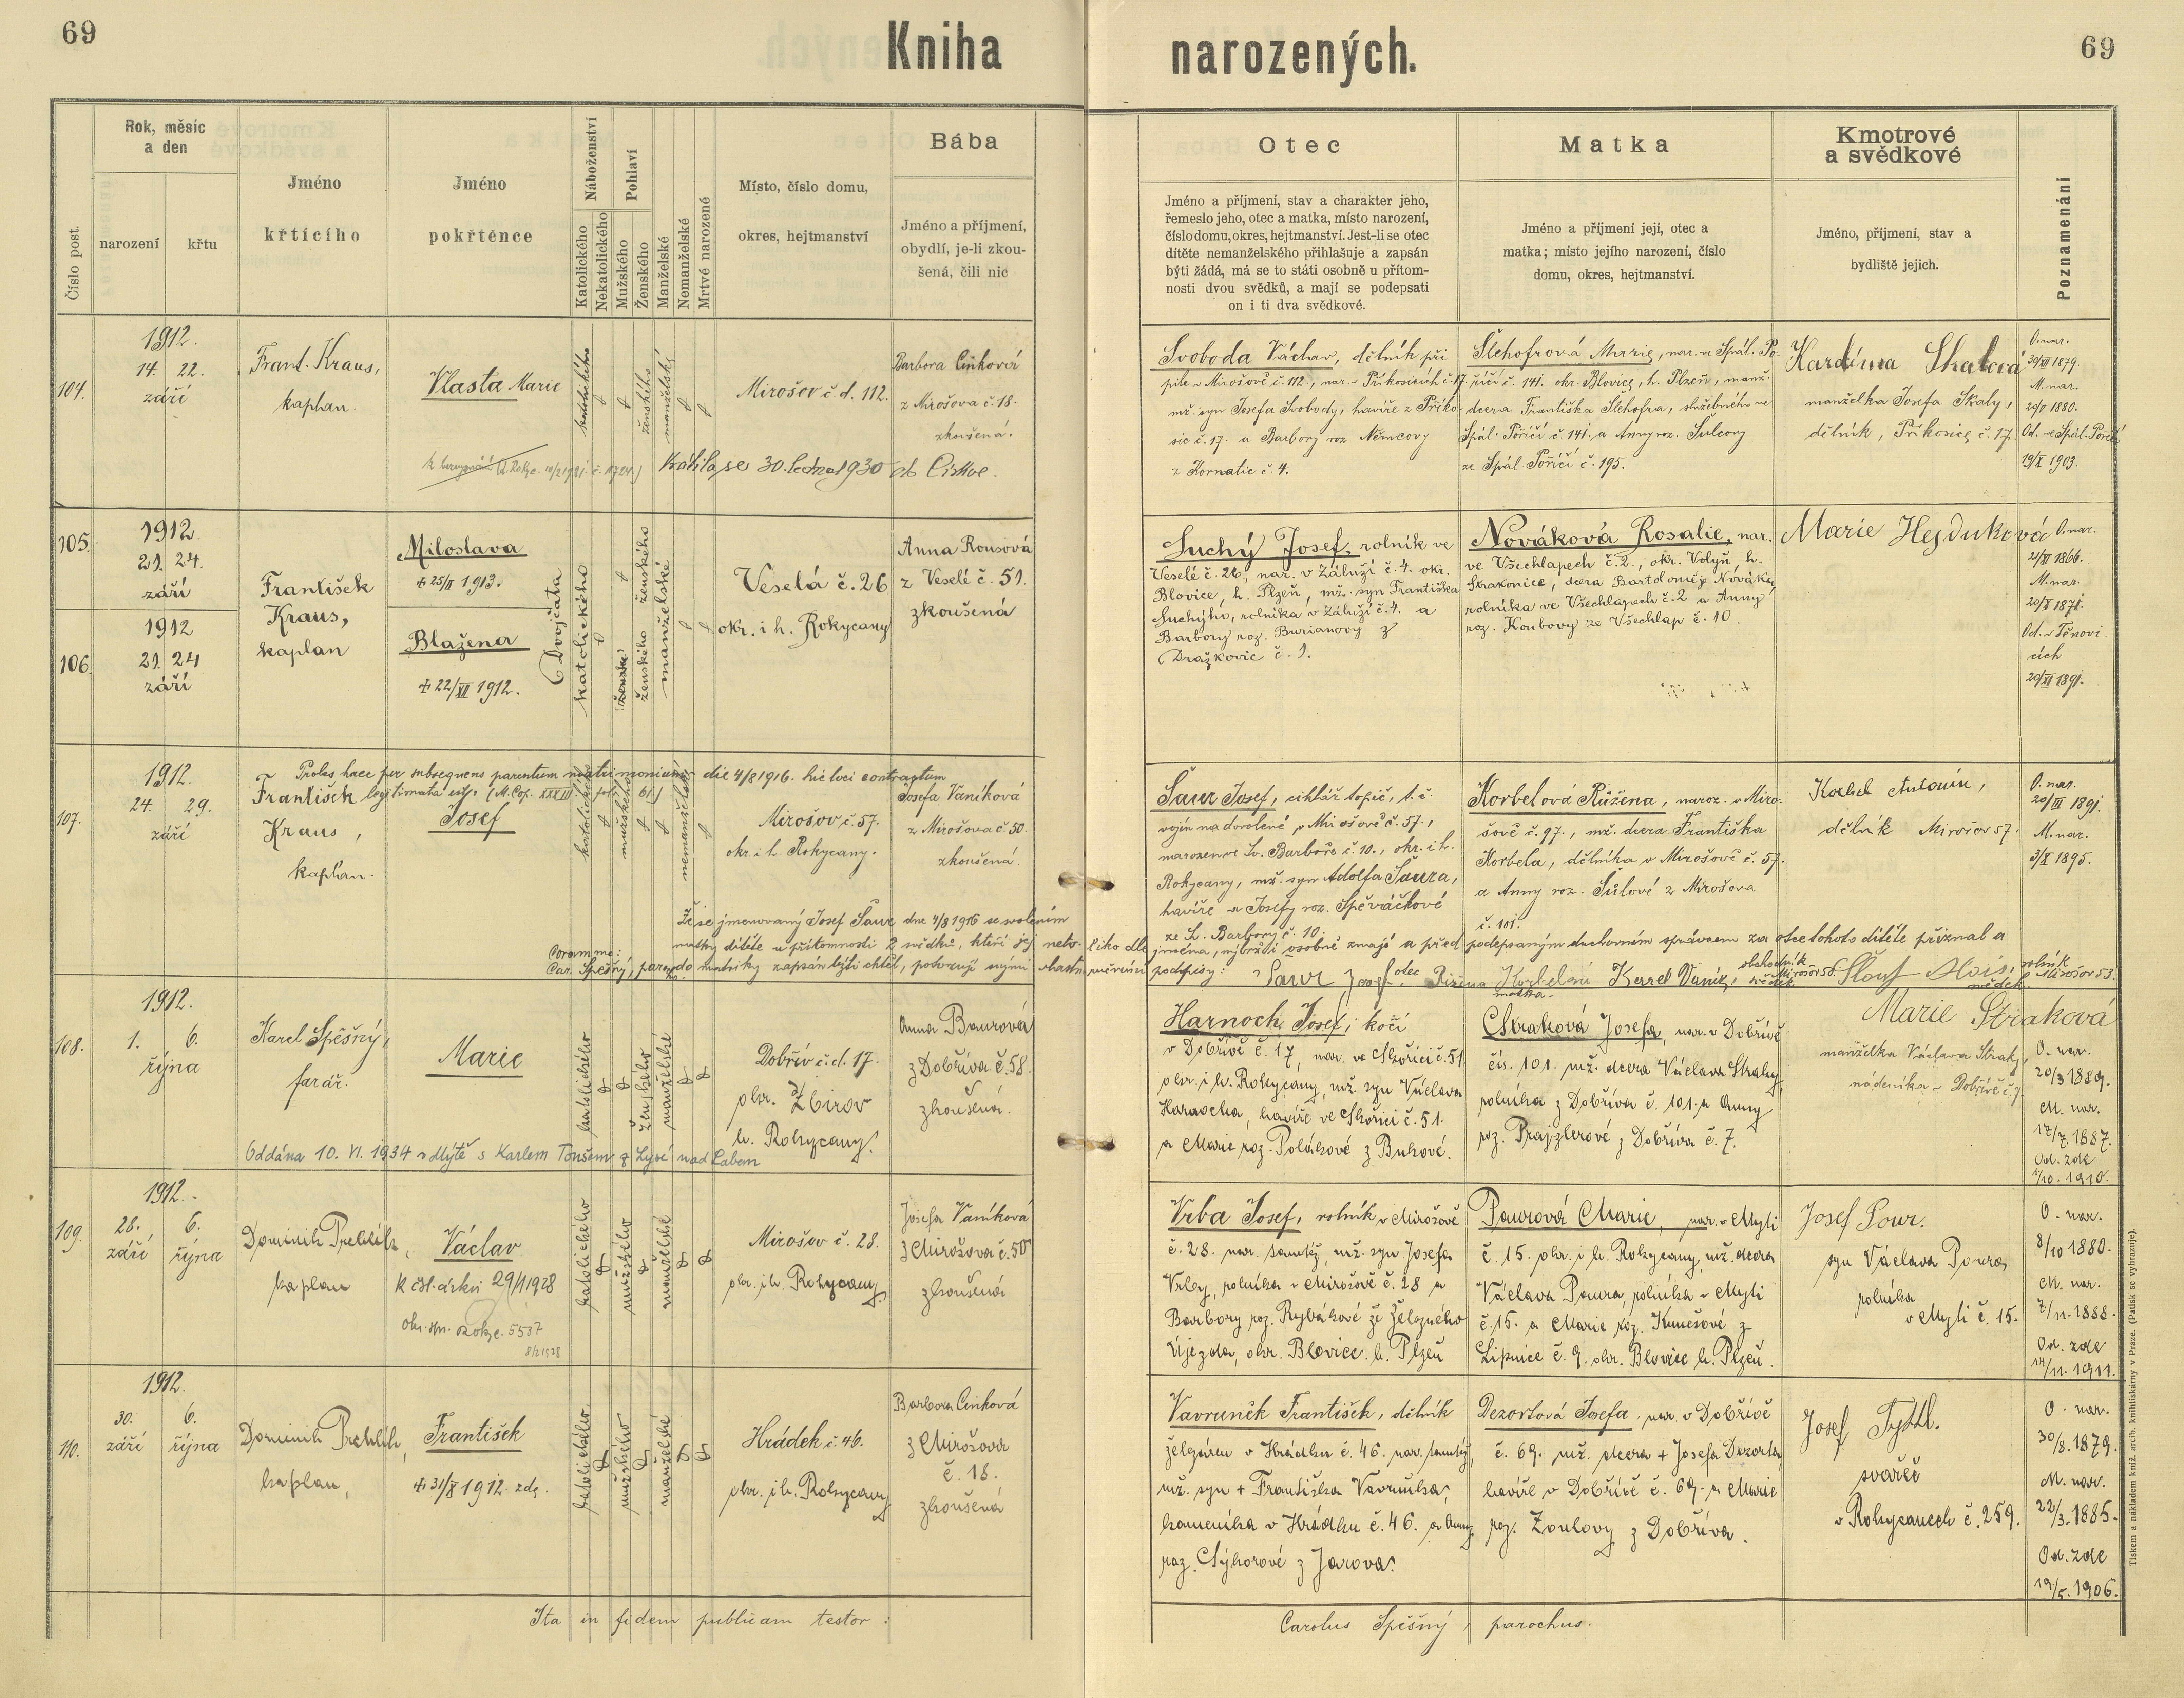 69
Kniha
narozených.
69
Číslo post.
Rok, měsíc
a den
narození
křtu
Jméno
křtícího
Jméno
pokřtěnce
Náboženství
Katolického
Nekatolického
Pohlaví
Mužského
Ženského
Manželské
Nemanželské
Mrtvě narozené
Místo, číslo domu,
okres, hejtmanství
Bába
Jméno a příjmení,
obydlí, je-li zkou-
šená, čili nic
Otec
Jméno a příjmení, stav a charakter jeho,
řemeslo jeho, otec a matka, místo narození,
číslo domu, okres, hejtmanství. Jest-li se otec
dítěte nemanželského přihlašuje a zapsán
býti žádá, má se to státi osobně u přítom-
nosti dvou svědků, a mají se podepsati
on i ti dva svědkové.
Matka
Jméno a příjmení její, otec a
matka; místo jejího narození, číslo
domu, okres, hejtmanství.
Kmotrové
a svědkové
Jméno, příjmení, stav a
bydliště jejich.
Poznamenání
104.
1912.
14. 22.
září
Frant. Kraus,
kaplan.
Vlasta Marie
katolického
ženského
manželské
Mirošov č. d. 112.
Barbora Cinková
z Mirošova č. 18.
zkoušená.
30. ledna 1930
Svoboda Václav, dělník při
pile v Mirošově č. 112., nar. v Příkosicích č. 17.
mž. syn Josefa Svobody, havíře z Příko-
sic č. 17. a Barbory roz. Němcovy
z Kornatic č. 4.
Šlehofrová Marie, nar. ve Spál. Po-
říčí č. 141. okr. Blovice, h. Plzeň, manž.
dcera Františka Šlehofra, služebného ve
Spál. Poříčí č. 141. a Anny roz. Šulcovy
ze Spál. Poříčí č. 195.
Skalová
manželka Josefa Skaly,
dělník, Příkosice č. 17.
O. nar.
1879.
M. nar.
1880.
Od. ve Spál. Poříčí
19/X 1903.
105.
1912.
21. 24.
září
106.
1912
21. 24
září
František
Kraus,
kaplan
Miloslava
+ 25/II 1913.
Blažena
+ 22/XII 1912.
Dvojčata
katolického
ženského
ženského
manželské
Veselá č. 26
okr. i h. Rokycany
Anna Rousová
z Veselé č. 51.
zkoušená
Suchý Josef, rolník ve
Veselé č. 26, nar. v Záluží č. 4. okr.
Blovice, h. Plzeň, mž. syn Františka
Suchýho, rolníka v Záluží č. 4. a
Barbory roz. Burianovy z
Dražkovic č. 1.
Nováková Rosalie, nar.
ve Všechlapech č. 2., okr. Volyň, h.
Strakonice, dcera Bartoloměje Nováka,
rolníka ve Všechlapech č. 2 a Anny
roz. Koubovy ze Všechlap č. 10.
Marie Hejduková
O. nar.
21/XI 1866.
M. nar.
20/X 1871.
Od. v Těnovi-
cích
20/XI 1891.
107.
1912.
24. 29.
září
Proles haec per subsequens parentum matrimonium die 4/8 1916. hic loci contractum
legitimata est. (M. Cop. XXXIII fol. 61.)
František
Kraus,
kaplan.
Josef
katolického
mužského
nemanželské
Mirošov, č. 57.
okr. i h. Rokycany.
Josefa Vaníková
z Mirošova č. 50.
zkoušená.
Šaur Josef, cihlář topič, t. č.
vojín na dovolené v Mirošově č. 57.,
narozen ve Sv. Barboře č. 10., okr. i h.
Rokycany, mž. syn Adolfa Šaura,
havíře a Josefy roz. Spěváčkové
ze Sv. Barbory č. 10.
Korbelová Růžena, naroz. v Miro-
šově č. 97., mž. dcera Františka
Korbela, dělníka v Mirošově č. 57.
a Anny roz. Šůlové z Mirošova
č. 101.
Korbel Antonín,
dělník Mirošov 57.
O. nar.
20/III 1891.
M. nar.
3/X 1895.
Že se jmenovaný Josef Šaur dne 4/8 1916 se svolením
matky dítěte u přítomnosti 2 svědků, kteří jej neto-liko dle jména, nýbrž i osobně znají a před podepsaným duchovním správcem za otce tohoto dítěte přiznal a
Coram me:
Car. Spěšný, par. do matriky zapsán býti chtěl, potvrzují svými vlastnoručními podpisy:
Saur Josef otec Růžena Korbelová matka Karel Vaník, obchodník Mirošov 50. svědek
Alois, rolník Mirošov 53. svědek
108.
1912.
1. 6.
října
Karel Spěšný,
farář.
Marie
katolického
ženského
manželské
Dobřív č. d. 17.
okr. Zbirov
h. Rokycany.
Anna Baurová
z Dobříva č. 58.
zkoušená.
Oddána 10. VI. 1934 v Mýtě s Karlem Tonšem z Lysé nad Labem
Harnoch Josef, kočí
v Dobřívě č. 17, nar. ve Skořici č. 51
okr. i h. Rokycany, mž. syn Václava
Harnocha, havíře ve Skořici č. 51.
a Marie roz. Polákové z Bukové.
Straková Josefa, nar. v Dobřívě
čís. 101. mž. dcera Václava Straky,
rolníka z Dobříva č. 101. a Anny
roz. Prajzlerové z Dobříva č. 7.
Marie Straková
manželka Václava Straky,
nádeníka v Dobřívě č. 7.
O. nar.
20/3 1889.
M. nar.
17/7. 1887.
Od. zde
1/10. 1910.
109.
1912.
28. 6.
září října
Dominik
kaplan
Václav
29/1 1928
5537
8/2 1928
katolického
mužského
manželské
Mirošov č. 28.
okr. i h. Rokycany
Josefa Vaníková
z Mirošova č. 50
zkoušená
Vrba Josef, rolník v Mirošově
č. 28. nar. tamtéž, mž. syn Josefa
Vrby, rolníka v Mirošově č. 28 a
Barbory roz. Rybákové ze Železného
Újezda, okr. Blovice. h. Plzeň
Pourová Marie, nar. v Mýti
č. 15. okr. i h. Rokycany, mž. dcera
Václava Poura, rolníka v Mýti
č. 15. a Marie roz. Kunešové z
Lipnice č. 9. okr. Blovice h. Plzeň.
Josef Pour.
syn Václava Poura
rolníka
v Mýti č. 15.
O. nar.
8/10 1880.
M. nar.
7/11. 1888.
Od. zde
14/11. 1911.
110.
1912.
30. 6.
září října
Dominik
kaplan,
František
+ 31/X 1912. zde.
katolického
mužského
manželské
Hrádek č. 46.
okr. i h. Rokycany
Barbora Cinková
z Mirošova
č. 18.
zkoušená
Vavruněk František, dělník
železáren v Hrádku č. 46. nar. tamtéž,
mž. syn + Františka Vavruňka,
kameníka v Hrádku č. 46. a Anny
roz. Sýkorové z Jarova.
Dezortová Josefa, nar. v Dobřívě
č. 69. mž. dcera + Josefa Dezorta,
havíře v Dobřívě č. 69. a Marie
roz. Zoulovy z Dobříva.
Josef
svářeč
v Rokycanech č. 259.
O. nar.
30/8. 1879.
M. nar.
22/3. 1885.
Od. zde
19/5. 1906.
Ita in fidem publicam testor:
Carolus Spěšný, parochus.
Tiskem a nákladem kníž. arcib. knihtiskárny v Praze. (Patisk se vyhrazuje).